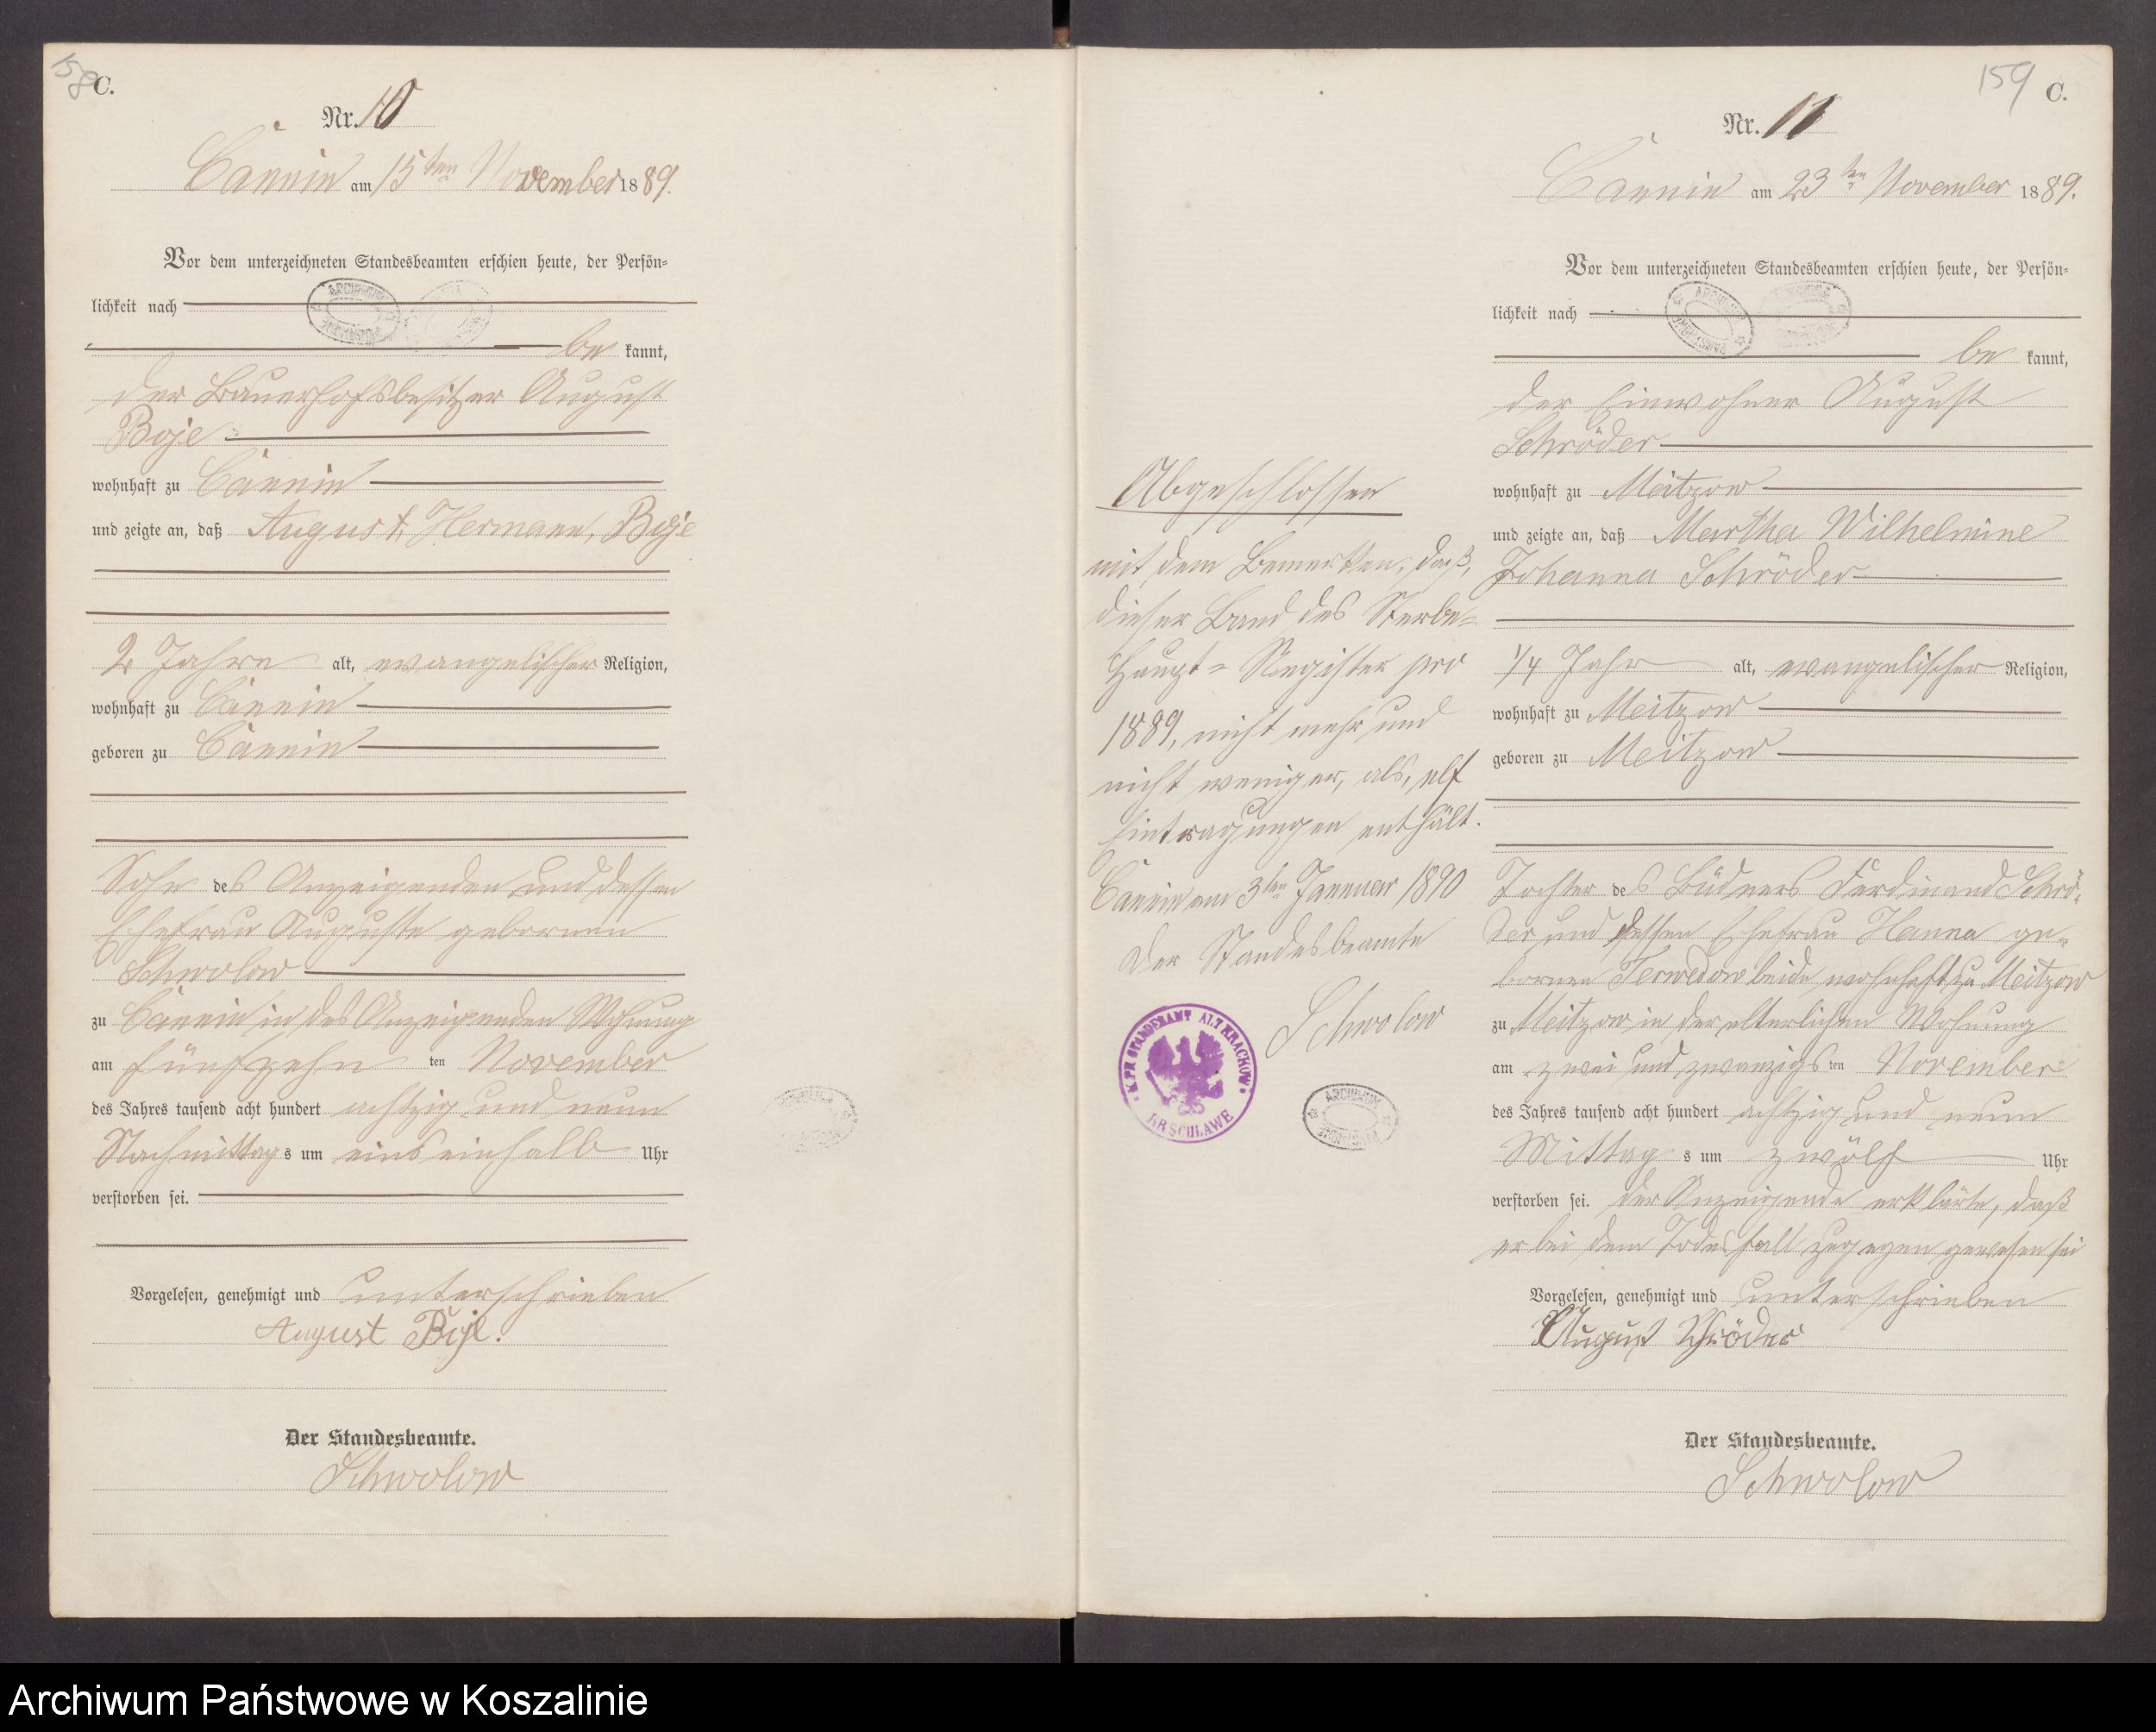 158
C.
Nr. 10
Cannin am 15ten November 1889.
Vor dem unterzeichneten Standesbeamten erschien heute, der Persön-
lichkeit nach
be kannt,
der Bauerhofsbesitzer August
Boje
wohnhaft zu Cannin
und zeigte an, daß August, Hermann, Boje
2 Jahre alt, evangelischer Religion,
wohnhaft zu Cannin
geboren zu Cannin
Sohn des Anzeigenden und dessen
Ehefrau Auguste gebornen
Schwolow
zu Cannin in des Anzeigenden Wohnung
am fünfzehn ten November
des Jahres tausend acht hundert achtzig und neun
Nachmittags um eins einhalb Uhr
verstorben sei.
Vorgelesen, genehmigt und unterschrieben
August Boje.
Der Standesbeamte.
Schwolow
Abgeschlossen
mit dem Bemerken, daß,
dieser Band des Sterbe-
Haupt-Register pro
1889, nicht mehr und
nicht weniger, als, elf
Eintragungen enthält.
Cannin am 3ten Januar 1890
Der Standesbeamte
Schwolow
K. PR. STANDESAMT ALT KRACKOW
KR SCHLAWE
ARCHIWUM
159
C.
Nr. 11
Cannin am 23ten November 1889.
Vor dem unterzeichneten Standesbeamten erschien heute, der Persön-
lichkeit nach
be kannt,
der Einwohner August
Schröder
wohnhaft zu Meitzow
und zeigte an, daß Martha Wilhelmine
Johanna Schröder
1/4 Jahr alt, evangelischer Religion,
wohnhaft zu Meitzow
geboren zu Meitzow
Tochter des Büdners Ferdinand Schrö-
der und dessen Ehefrau Hanna ge-
bornen Terwedow beide wohnhaft zu Meitzow
zu Meitzow in der elterlichen Wohnung
am zwei und zwanzigsten November
des Jahres tausend acht hundert achtzig und neun
Mittags um zwölf Uhr
verstorben sei. der Anzeigende erklärte, daß
er bei dem Todesfall zugegen gewesen sei
Vorgelesen, genehmigt und unterschrieben
August Schröder
Der Standesbeamte.
Schwolow
Archiwum Państwowe w Koszalinie